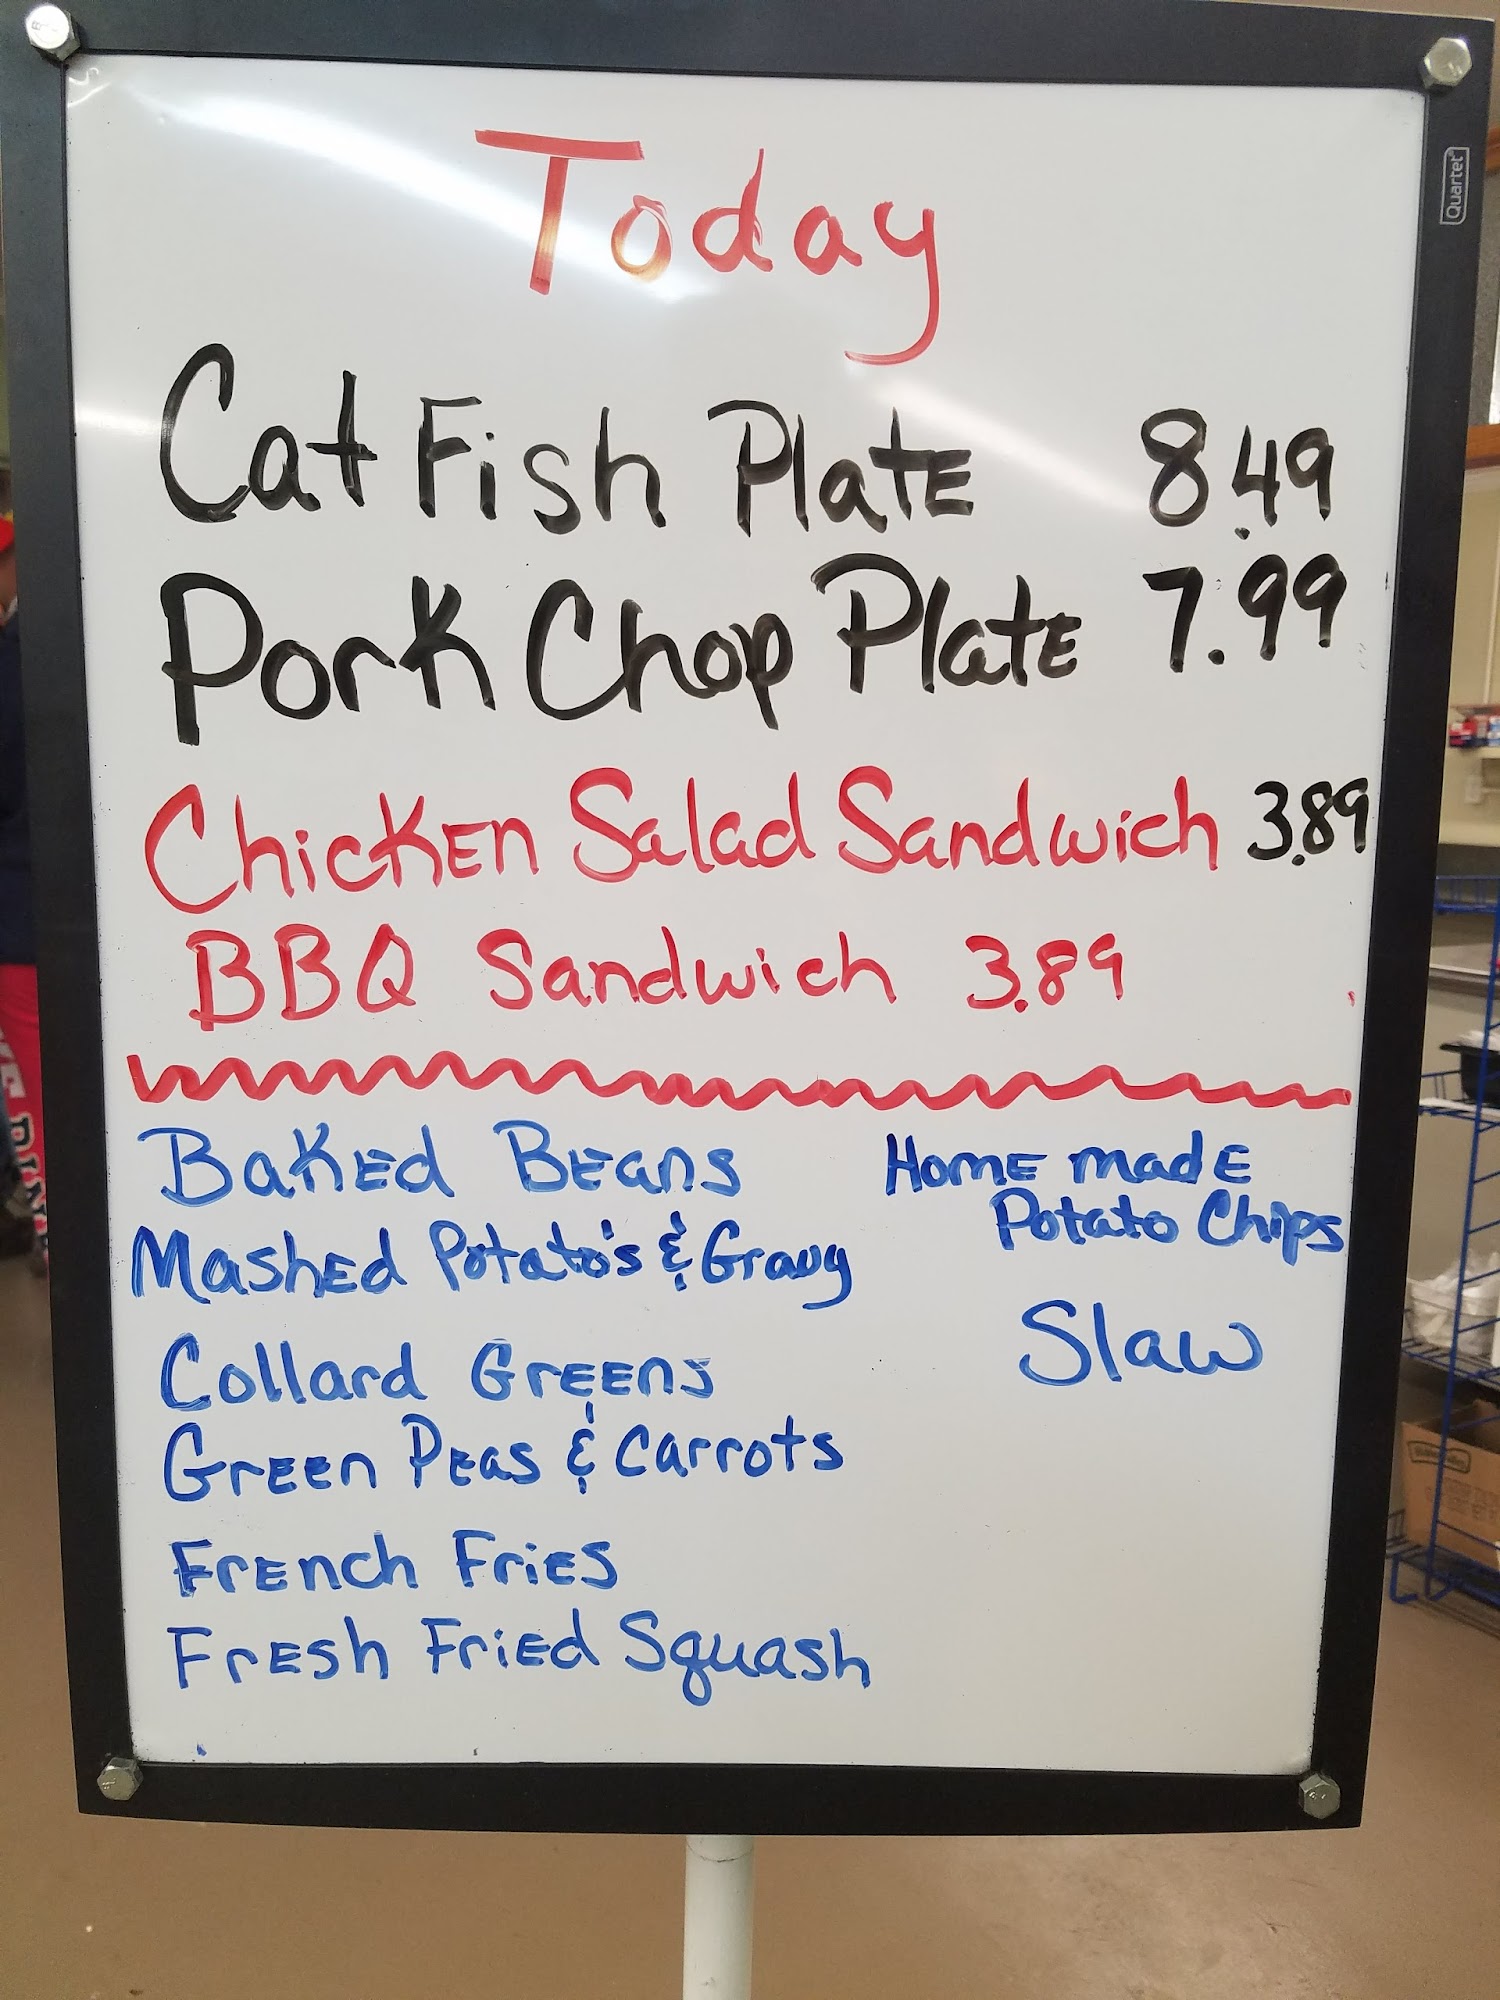 Today
Cat Fish Plate 8.49
Pork Chop Plate 7.99
Chicken Salad Sandwich 3.89
BBQ Sandwich 3.89
Baked Beans
Mashed Potato's & Gravy
Collard Greens
Green Peas & Carrots
French Fries
Fresh Fried Squash
Home made
Potato Chips
Slaw
Quartet